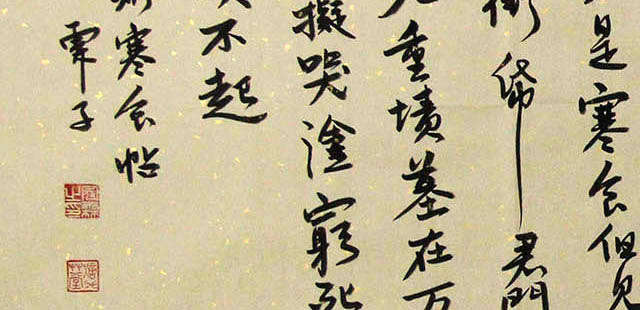 是寒食但見
銜帋君門
重墳墓在万
擬哭塗窮死
不起
寒食帖
覃子